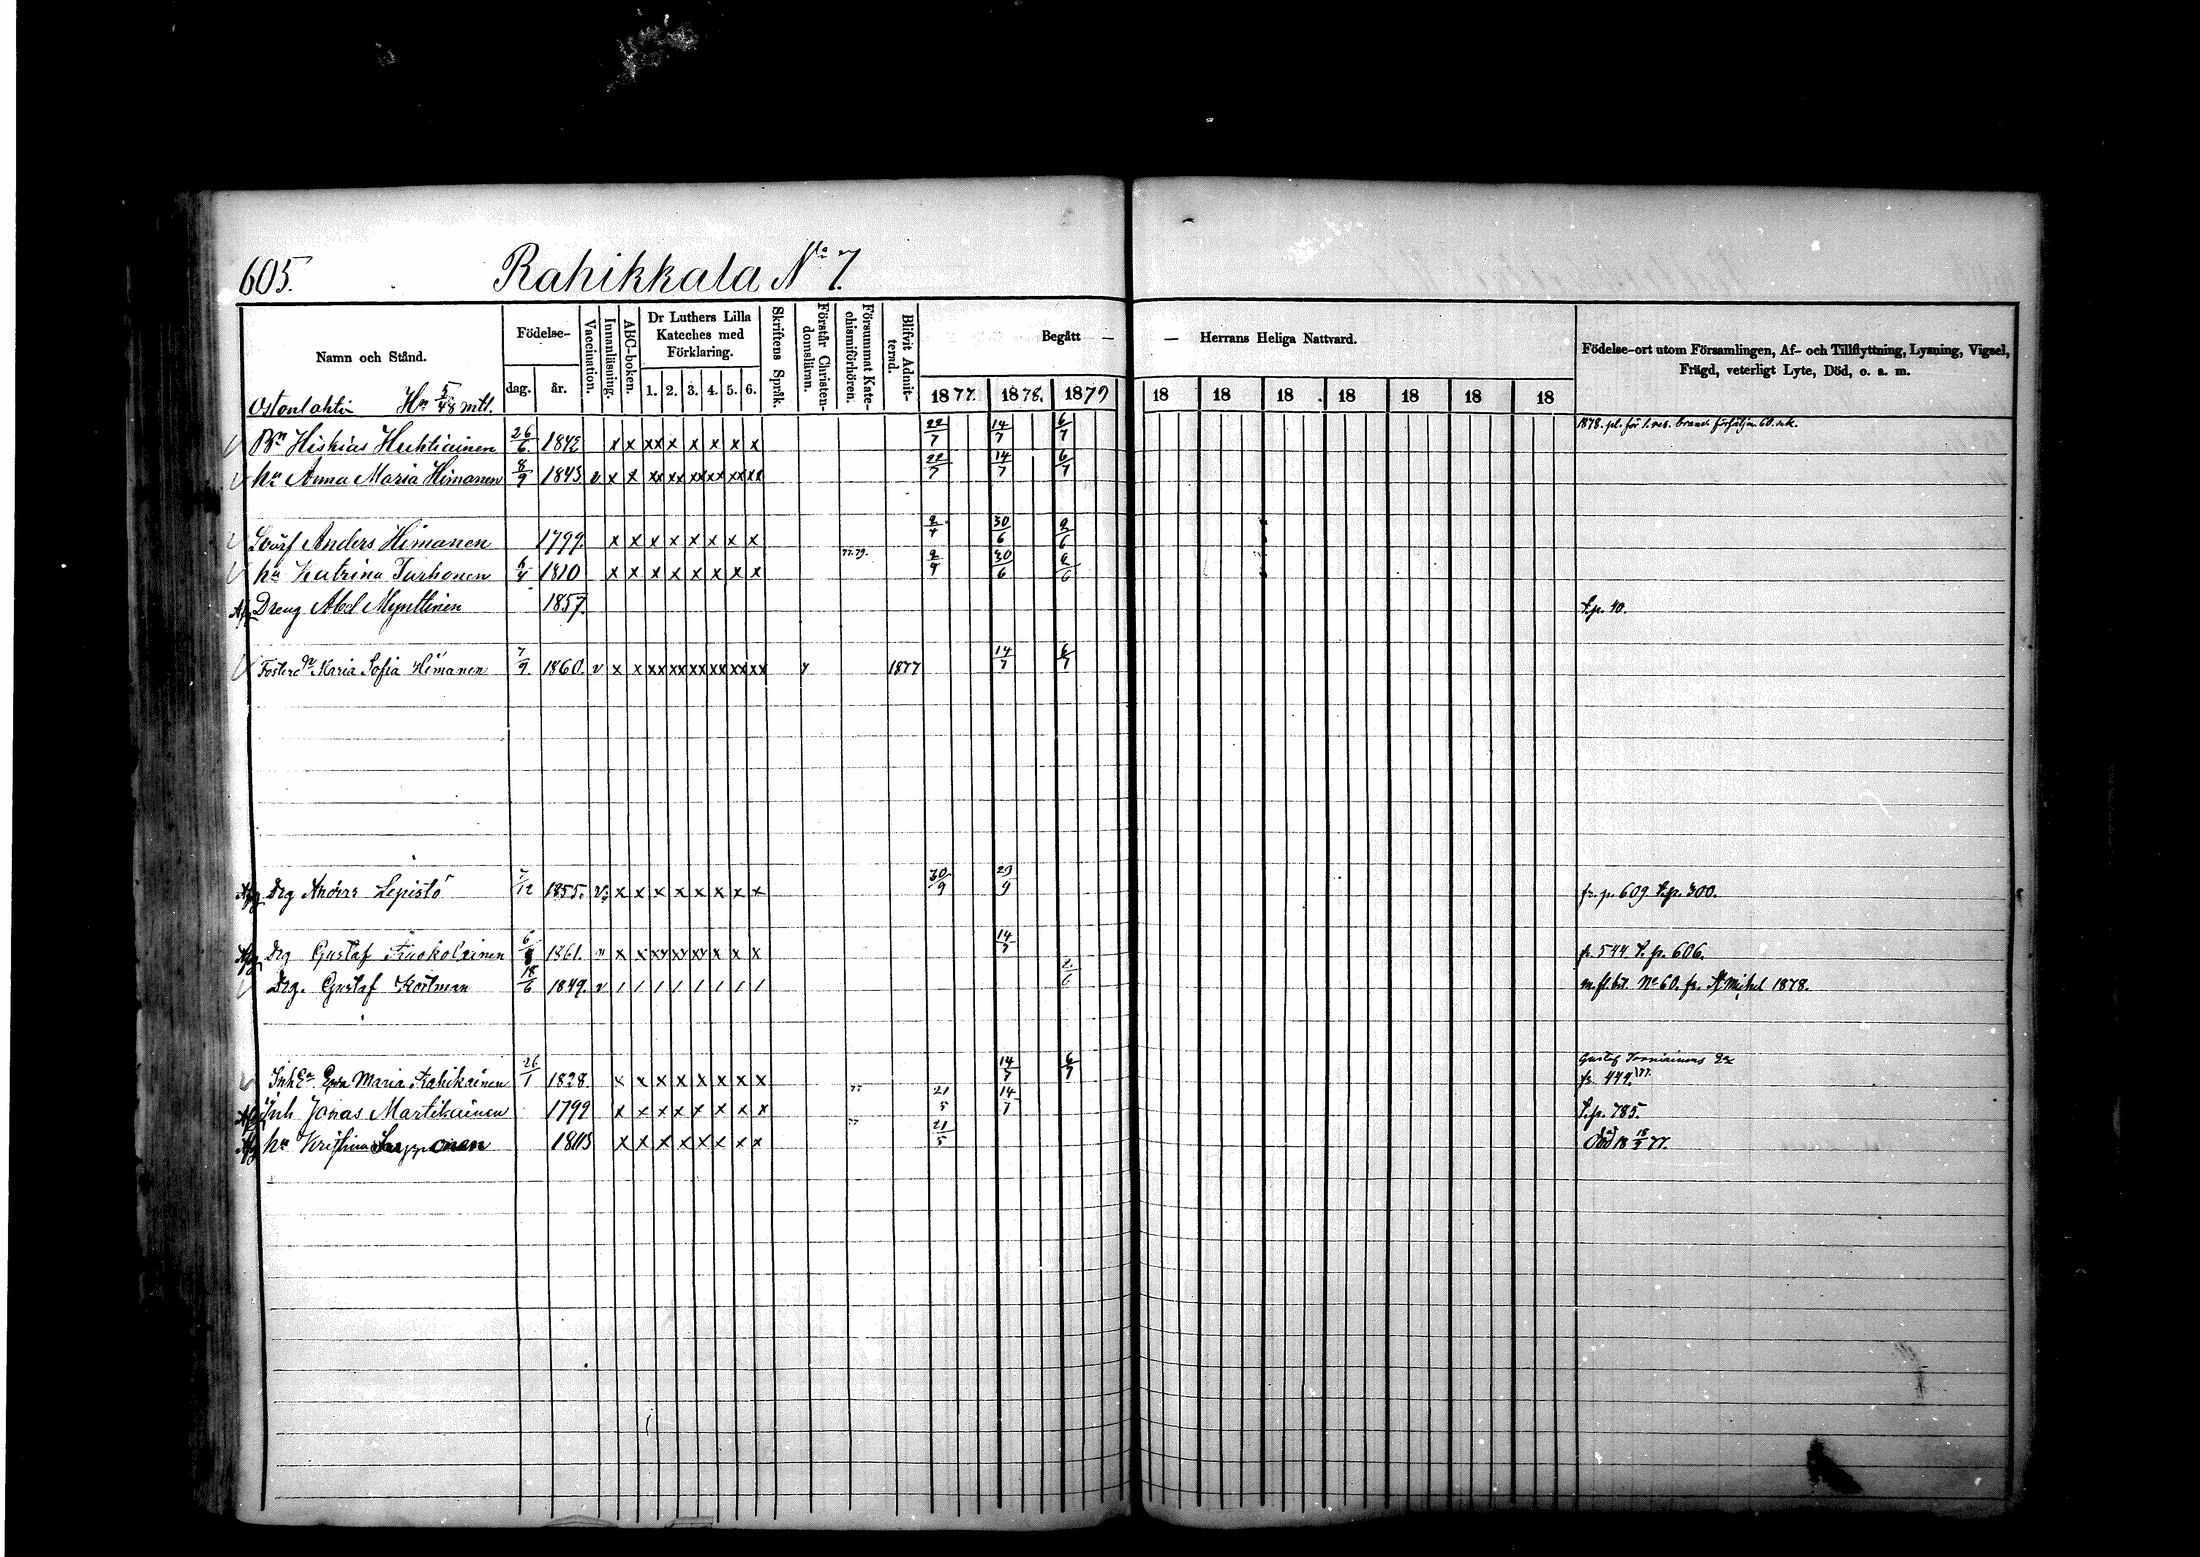 605. Rahikkala No 7.
Namn och Stånd. Födelse- dag. år. Vaccination. Innanläsning. ABC-boken. Dr Luthers Lilla Kateches med Förklaring. 1. 2. 3. 4. 5. 6. Skriftens Språk. Förstår Christendomsläran. Försummat Katechismiförhören. Blifvit Admitterad. Begått — — Herrans Heliga Nattvard. Födelse-ort utom Församlingen, Af- och Tillflyttning, Lysning, Vigsel, Frägd, veterligt Lyte, Död, o. a. m.
1877. 1878. 1879 18 18 18 18 18 18 18
Ostonlahti Hn 5/48 mtl.
Bn Hiskias Huhtiainen 26/6 1842 x x xx x x x x x 22/7 14/7 6/7 1878. pl. för
hu Anna Maria Himanen 8/9 1843 v x x xx xx xx xx xx xx 22/7 14/7 6/7
Anders Himanen 1799. x x x x x x x x 2/4 30/6 2/6
hu Katrina Turhonen 6/4 1810 x x x x x x x x 77.79. 2/4 30/6 2/6
Afg Dreng Abel Mynttinen 1857. t.p. 10.
Fosterdr Maria Sofia Himanen 7/9. 1860. v x x xx xx xx xx xx xx 1877 14/7 6/7
Afg Drg Anders Lepistö 7/12 1855. v x x x x x x x x 30/9 29/9 fr. p. 609 t.p. 300.
Afg Drg Gustaf 1861. v x x xx xx xx x x x 14/7 fr. 544 t. p. 606.
Drg. Gustaf Kostman 18/6 1849. v / / / / / / / / 2/6 m. fl. bet. No 60. fr. St Michel 1878.
Inh Ea Eva Maria Rahikainen 26/1 1828. x x x x x x x x 14/7 6/7 Gustaf Ea fr. 449. 77.
Afg Inh Jonas Martikainen 1792 x x x x x x x x 77 21/5 14/7 t.p. 785.
Afg hu Kristina x x x x x x x x 77 21/5 död 18 18/9 77.